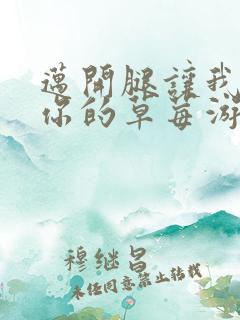 邁開腿讓我
你的草莓游
穆继昌
未经同意禁止转载